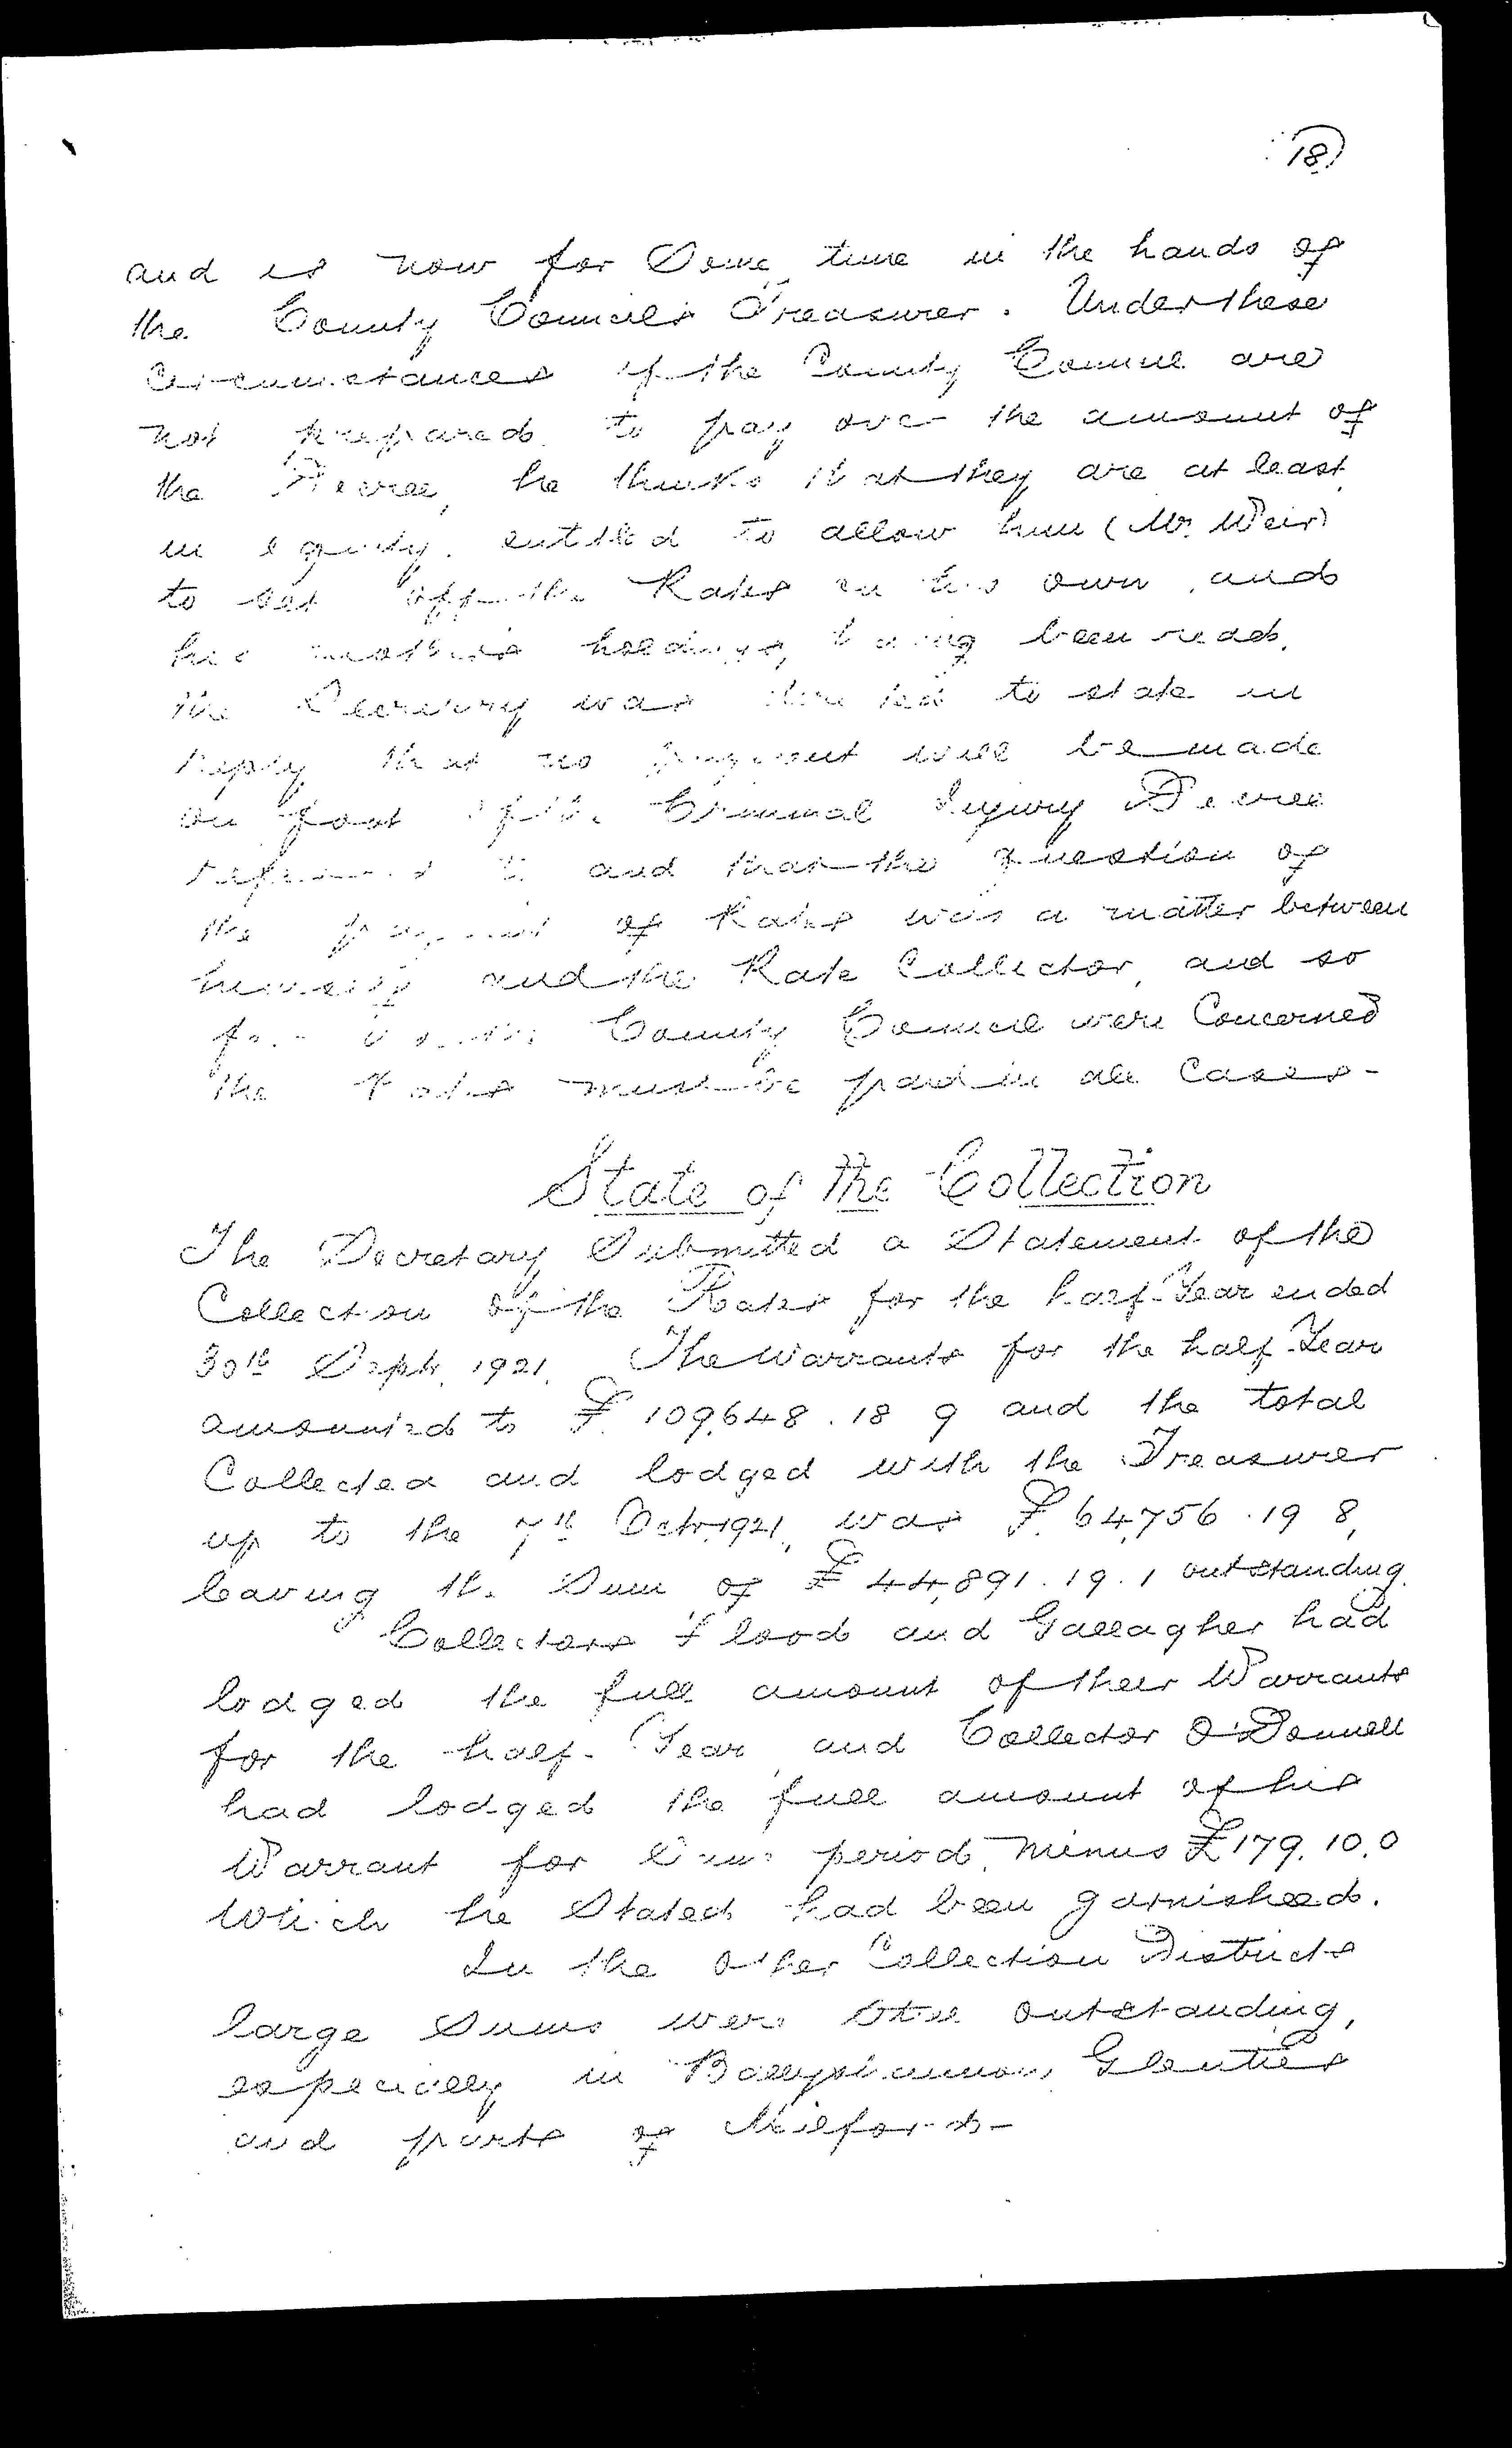 18
and is now for Some time in the hands of
the County Council's Treasurer. Under these
Circumstances if the County Council are
not prepared to pay over the amount of
the Decree, he thinks that they are at least
in equity entitled to allow him (Mr. Weir)
to set off the Rates on his own and
his mother's holdings, having been read,
the Secretary was directed to state in
reply that no payment will be made
on foot of the Criminal Injury Decree
referred to and that the question of
the payment of Rates was a matter between
himself and the Rate Collector, and so
far as the County Council were Concerned
the Rates must be paid in all Cases -
State of the Collection
The Secretary Submitted a Statement of the
Collection of the Rates for the half-Year ended
30th Sept. 1921. The Warrants for the half-Year
amounted to £109,648.18 9 and the total
Collected and lodged with the Treasurer
up to the 7th Octr. 1921, was £64,756.19 8,
leaving the Sum of £44,891.19.1 outstanding.
Collectors Flood and Gallagher had
lodged the full amount of their Warrants
for the half-Year, and Collector O'Donnell
had lodged the full amount of his
Warrant for Same period, minus £179.10.0
Which he Stated had been garnisheed.
In the other Collection Districts
large Sums were Still outstanding,
especially in Ballyshannon, Glenties
and parts of Milford -